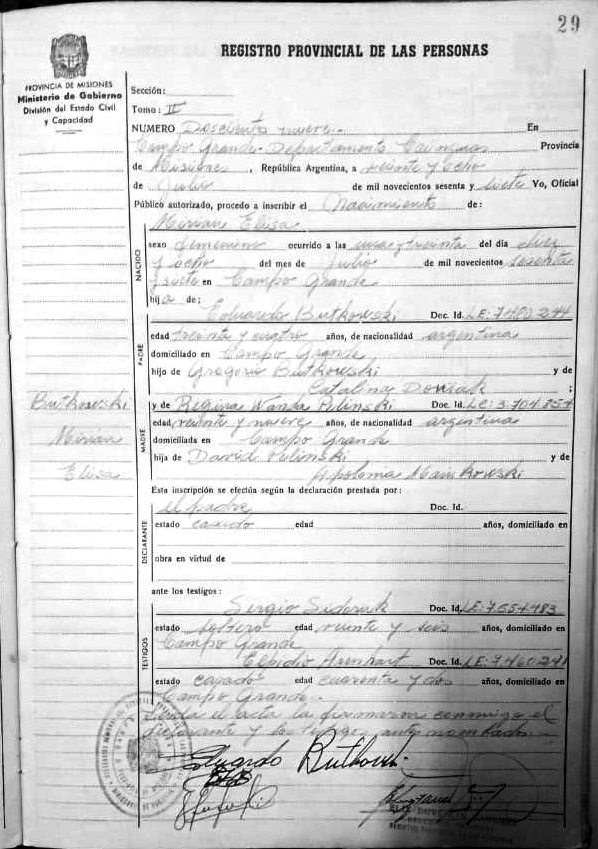 29
REGISTRO PROVINCIAL DE LAS PERSONAS
PROVINCIA DE MISIONES
Ministerio de Gobierno
División del Estado Civil
y Capacidad
Sección:
Tomo: II
NUMERO Doscientos nueve.- En
Campo Grande- Departamento Cainguas Provincia
de Misiones, República Argentina, a veinte y ocho
de Julio de mil novecientos sesenta y siete Yo, Oficial
Público autorizado, procedo a inscribir el Nacimiento de:
Mirian Elisa
NACIDO
sexo femenino ocurrido a las una y treinta del día diez
y ocho del mes de Julio de mil novecientos sesenta
y siete en Campo Grande
hija de;
Eduardo Butkowski Doc. Id. LE: 7480244
PADRE
edad treinta y cuatro años, de nacionalidad argentina
domiciliado en Campo Grande
hijo de Gregorio Butkowski y de
Catalina ;
Butkowski
Mirian
Elisa
y de Regina Wanda Pilinski Doc. Id. LE: 3.704.854
MADRE
edad veinte y nueve años, de nacionalidad argentina
domiciliada en Campo Grande
hija de David Pilinski y de
Esta inscripción se efectúa según la declaración prestada por:
DECLARANTE
el padre Doc. Id.
estado casado edad años, domiciliado en
obra en virtud de
ante los testigos:
TESTIGOS
Sergio Doc. Id. LE: 7.554.483
estado soltero edad veinte y seis años, domiciliado en
Campo Grande
Elbidio Doc. Id. LE: 7.460.241
estado casado edad cuarenta y dos años, domiciliado en
Campo Grande.-
el acta la firmaron conmigo el
y los testigos antes nombrados.
Eduardo Butkowski